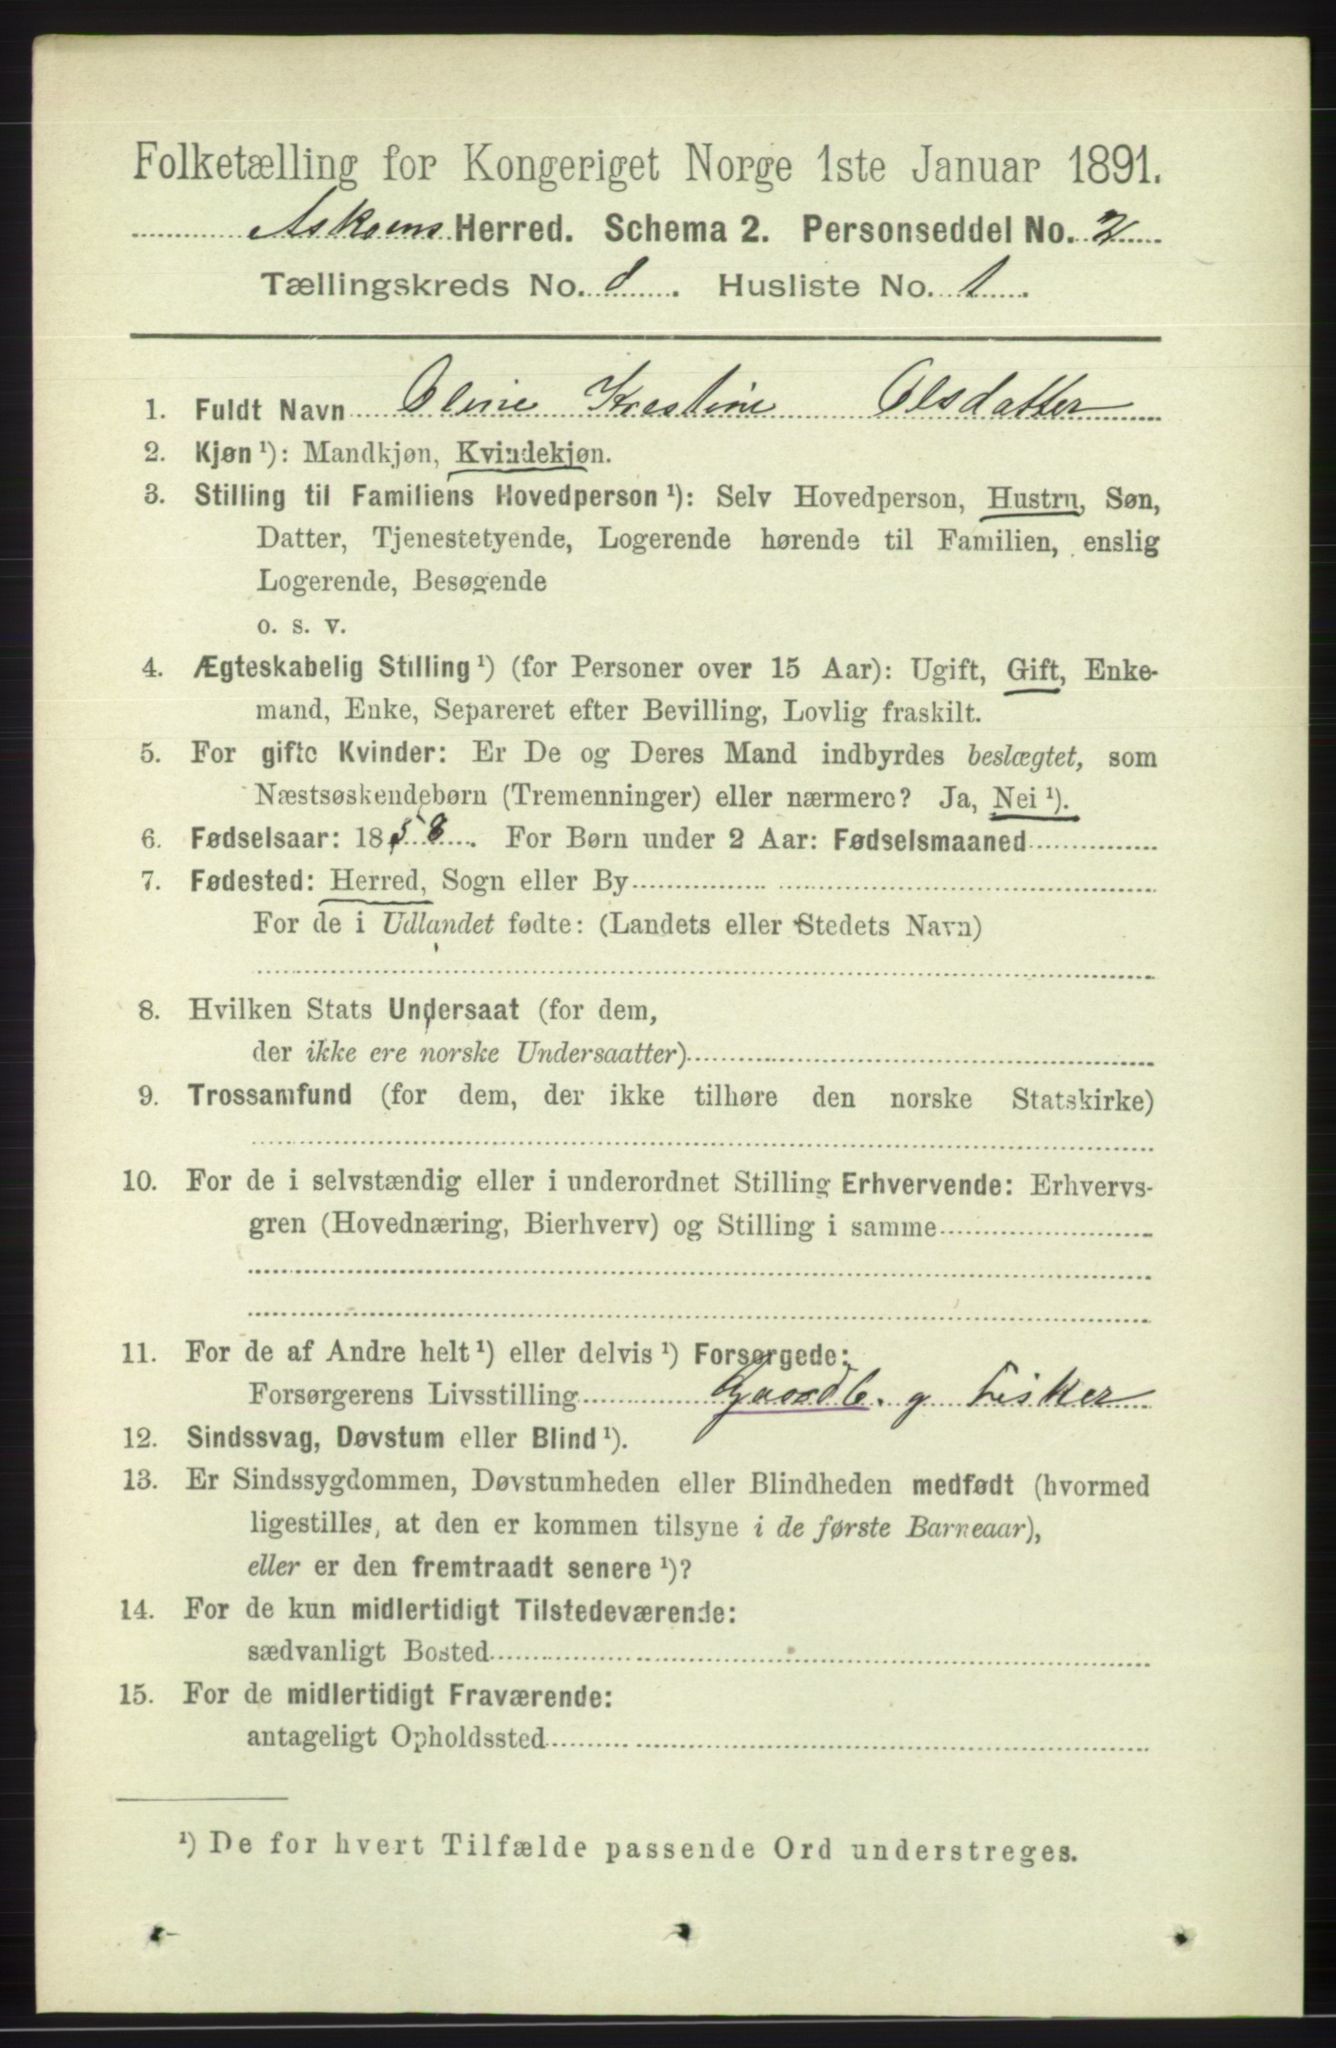 Folketælling for Kongeriget Norge 1ste Januar 1891.
Askøens Herred. Schema 2. Personseddel No. 2
Tællingskreds No. 8. Husliste No. 1.
1. Fuldt Navn Oline Krestine Olsdatter
2. Kjøn ¹): Mandkjøn, Kvindekjøn.
3. Stilling til Familiens Hovedperson ¹): Selv Hovedperson, Hustru, Søn,
Datter, Tjenestetyende, Logerende hørende til Familien, enslig
Logerende, Besøgende
o. s. v.
4. Ægteskabelig Stilling ¹) (for Personer over 15 Aar): Ugift, Gift, Enke-
mand, Enke, Separeret efter Bevilling, Lovlig fraskilt.
5. For gifte Kvinder: Er De og Deres Mand indbyrdes beslægtet, som
Næstsøskendebørn (Tremenninger) eller nærmere? Ja, Nei ¹).
6. Fødselsaar: 1858. For Børn under 2 Aar: Fødselsmaaned
7. Fødested: Herred, Sogn eller By
For de i Udlandet fødte: (Landets eller Stedets Navn)
8. Hvilken Stats Undersaat (for dem,
der ikke ere norske Undersaatter)
9. Trossamfund (for dem, der ikke tilhøre den norske Statskirke)
10. For de i selvstændig eller i underordnet Stilling Erhvervende: Erhvervs-
gren (Hovednæring, Bierhverv) og Stilling i samme
11. For de af Andre helt ¹) eller delvis ¹) Forsørgede:
Forsørgerens Livsstilling Gaardb. g Fisker
12. Sindssvag, Døvstum eller Blind ¹).
13. Er Sindssygdommen, Døvstumheden eller Blindheden medfødt (hvormed
ligestilles, at den er kommen tilsyne i de første Barneaar),
eller er den fremtraadt senere ¹)?
14. For de kun midlertidigt Tilstedeværende:
sædvanligt Bosted
15. For de midlertidigt Fraværende:
antageligt Opholdssted
¹) De for hvert Tilfælde passende Ord understreges.